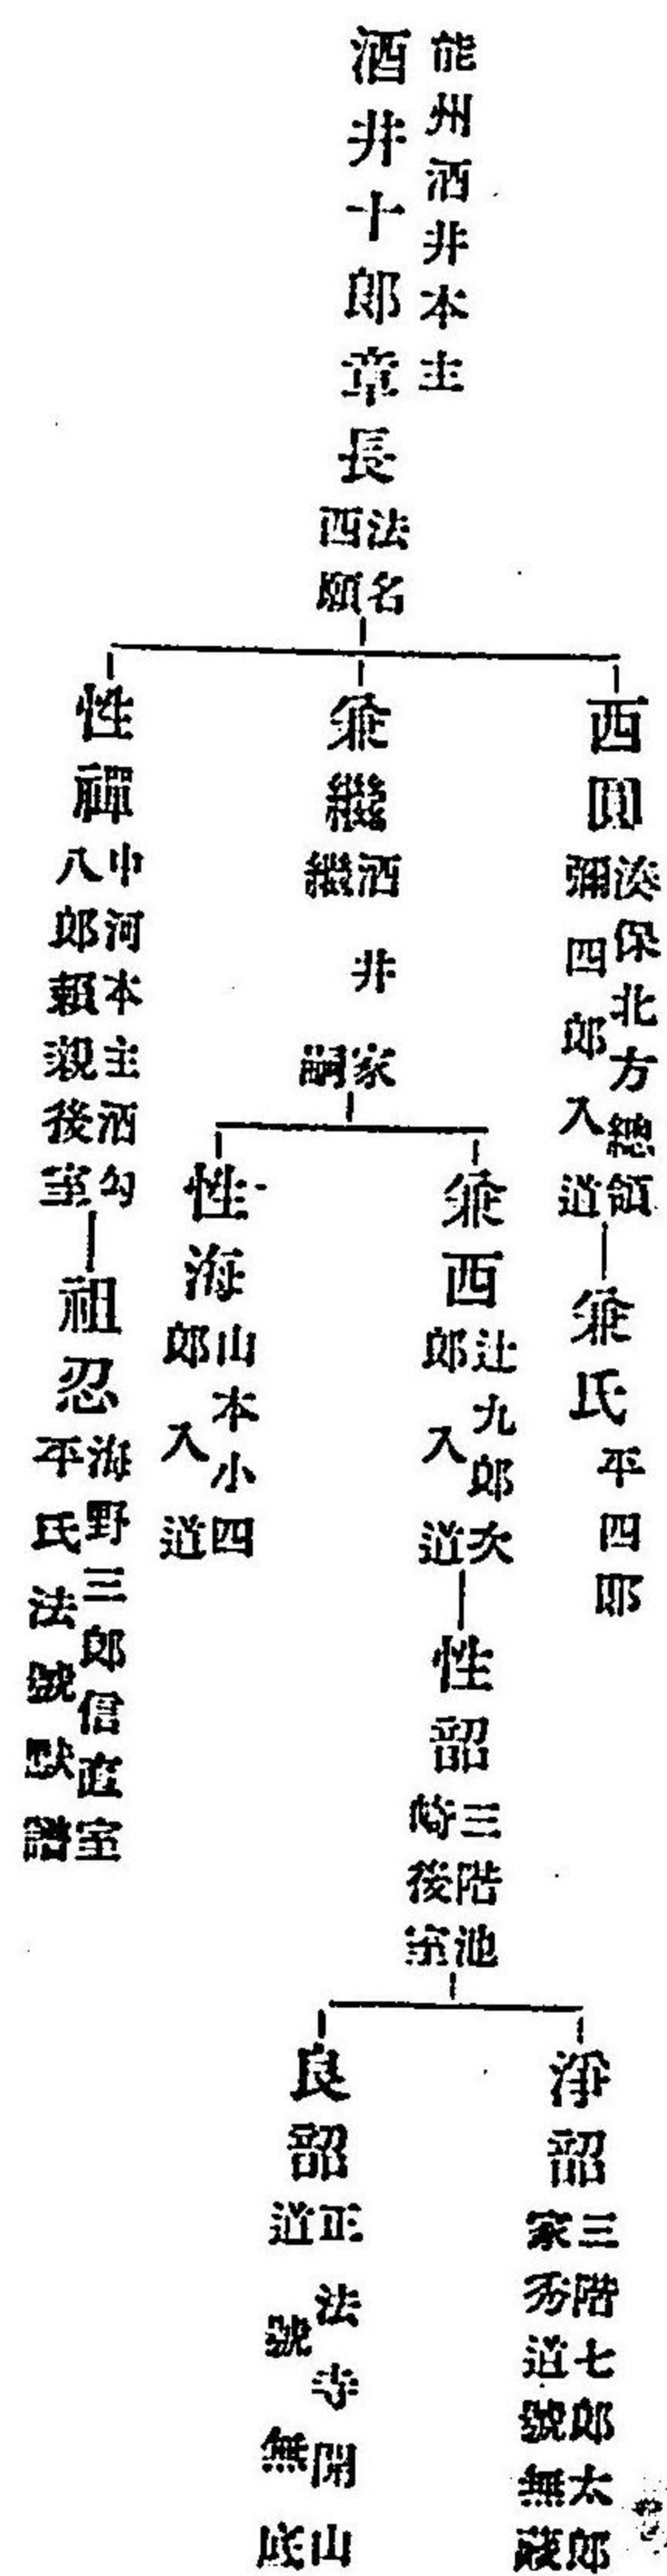 能州酒井本主
酒井十郎章長
法名
西願
西圓
湊保北方總領
彌四郎入道
兼氏
平四郎
兼繼
酒井家
繼嗣
兼西
辻九郎次
郎入道
性韶
三階池
崎後室
淨韶
三階七郎太郎
家秀道號無藏
良韶
正法寺開山
道號無底
性海
山本小四
郎入道
性禪
中河本主酒勾
八郎賴親後室
祖忍
海野三郎信直室
平氏法號默譜